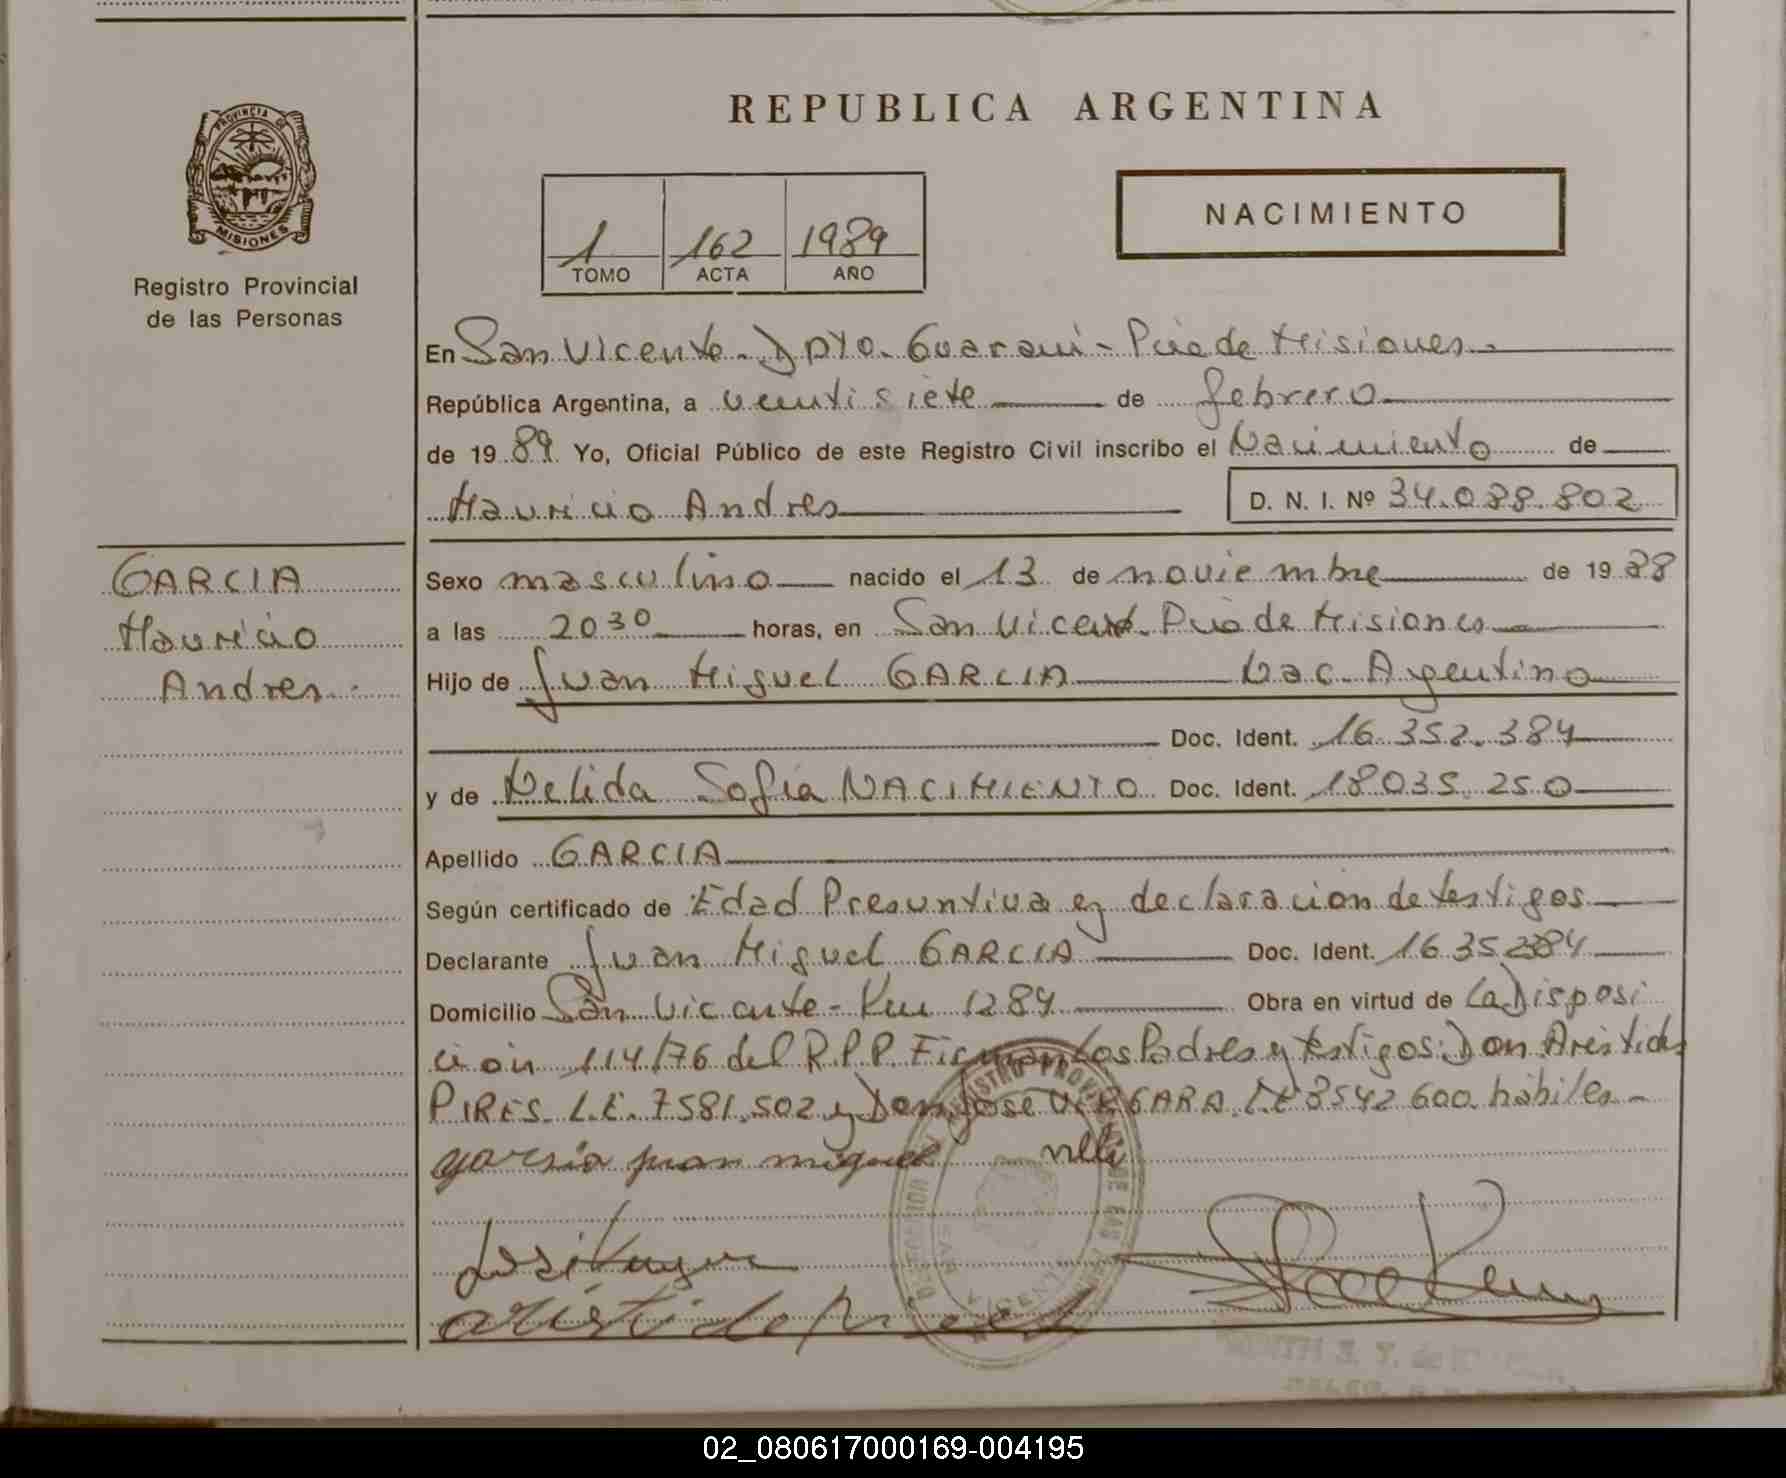 PROVINCIA DE
MISIONES
Registro Provincial
de las Personas
REPUBLICA ARGENTINA
1 162 1989
TOMO ACTA AÑO
NACIMIENTO
En San Vicente - Dpto. Guaraní - Pcia de Misiones -
República Argentina, a veintisiete de febrero
de 1989 Yo, Oficial Público de este Registro Civil inscribo el Nacimiento de
Mauricio Andres D. N. I. Nº 34.088.802
GARCIA
Mauricio
Andres
Sexo masculino nacido el 13 de noviembre de 1988
a las 20³⁰ horas, en San Vicente. Pcia de Misiones
Hijo de Juan Miguel GARCIA Nac. Argentino
Doc. Ident. 16.352.384
y de Nelida Sofia NACIMIENTO Doc. Ident. 18.035.250
Apellido GARCIA
Según certificado de Edad Presuntiva y declaracion de testigos
Declarante Juan Miguel GARCIA Doc. Ident. 16.352384
Domicilio San Vicente - Km 1289 Obra en virtud de La Disposi
cion 114/76 del R.P.P. Firman Los Padres y testigos: Don Aristides
PIRES. L.E. 7581.502 y Don Jose VERGARA. L.E 8542 600 habiles -
garsia juan miguel
02_080617000169-004195